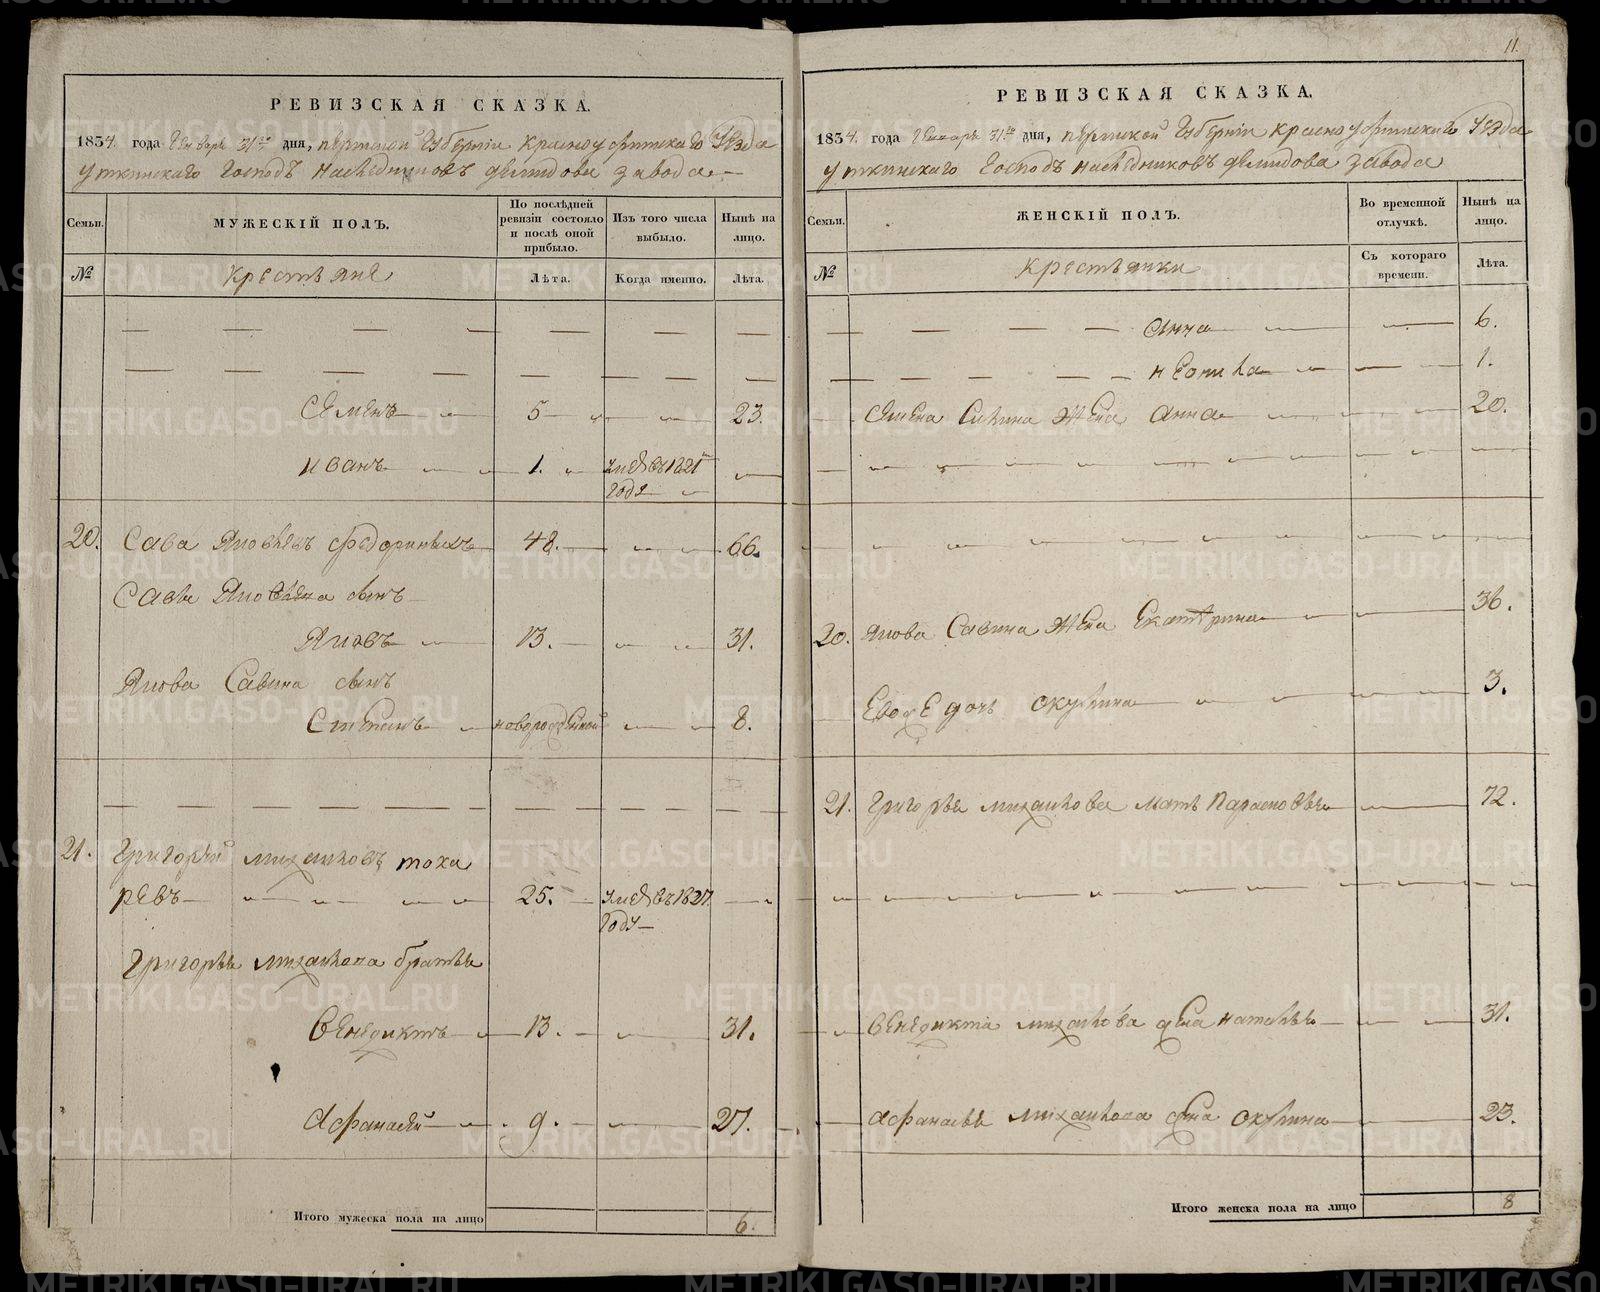 РЕВИЗСКАЯ СКАЗКА.
1834. года Генваря 31го дня, пермской Губерніи Красноуфимскаго Уѣзда
Уткинскаго Господъ Наслѣдниковъ демидова завода
Семьи.
МУЖЕСКІЙ ПОЛЪ.
По послѣдней ревизіи состояло и послѣ оной прибыло.
Изъ того числа выбыло.
Нынѣ на лицо.
№
крестьяне
Лѣта.
Когда именно.
Лѣта.
Семенъ 5 23.
иванъ 1. 1821
года
20. Сава Яковлевъ 48. 66.
Савы Яковлева сынъ
Яковъ 13. 31.
Якова Савина сынъ
Степанъ новорожденной 8.
21. Григорій михайловъ тока
ревъ 25. 1827.
году
Григорья михайлова братья
Венедиктъ 13. 31.
Афанасей 9. 27.
Итого мужеска пола на лицо 6.
11.
РЕВИЗСКАЯ СКАЗКА.
1834. года Генваря 31го дня, пермской Губерніи Красноуфимскаго Уѣзда
Уткинскаго Господъ Наслѣдниковъ демидова завода
Семьи.
ЖЕНСКІЙ ПОЛЪ.
Во временной отлучкѣ.
Нынѣ на лицо.
№
крестьянки
Съ котораго времени.
Лѣта.
Анна 6.
1.
Семена жена анна 20.
20. Якова Савина жена Екатерина 36.
Евоже дочь окулина 3.
21. Григорья михайлова мать Парасковья 72.
Венедикта михайлова жена наталья 31.
Афанасья михайлова жена окулина 23.
Итого женска пола на лицо 8
METRIKI.GASO-URAL.RU